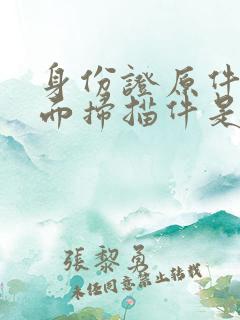 身份證原件
而掃描件是
張黎勇
未经同意禁止转载